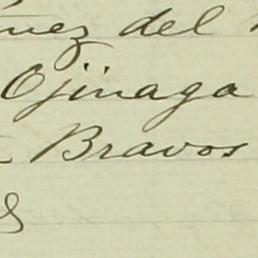 nez del
Ojinaga
Bravos